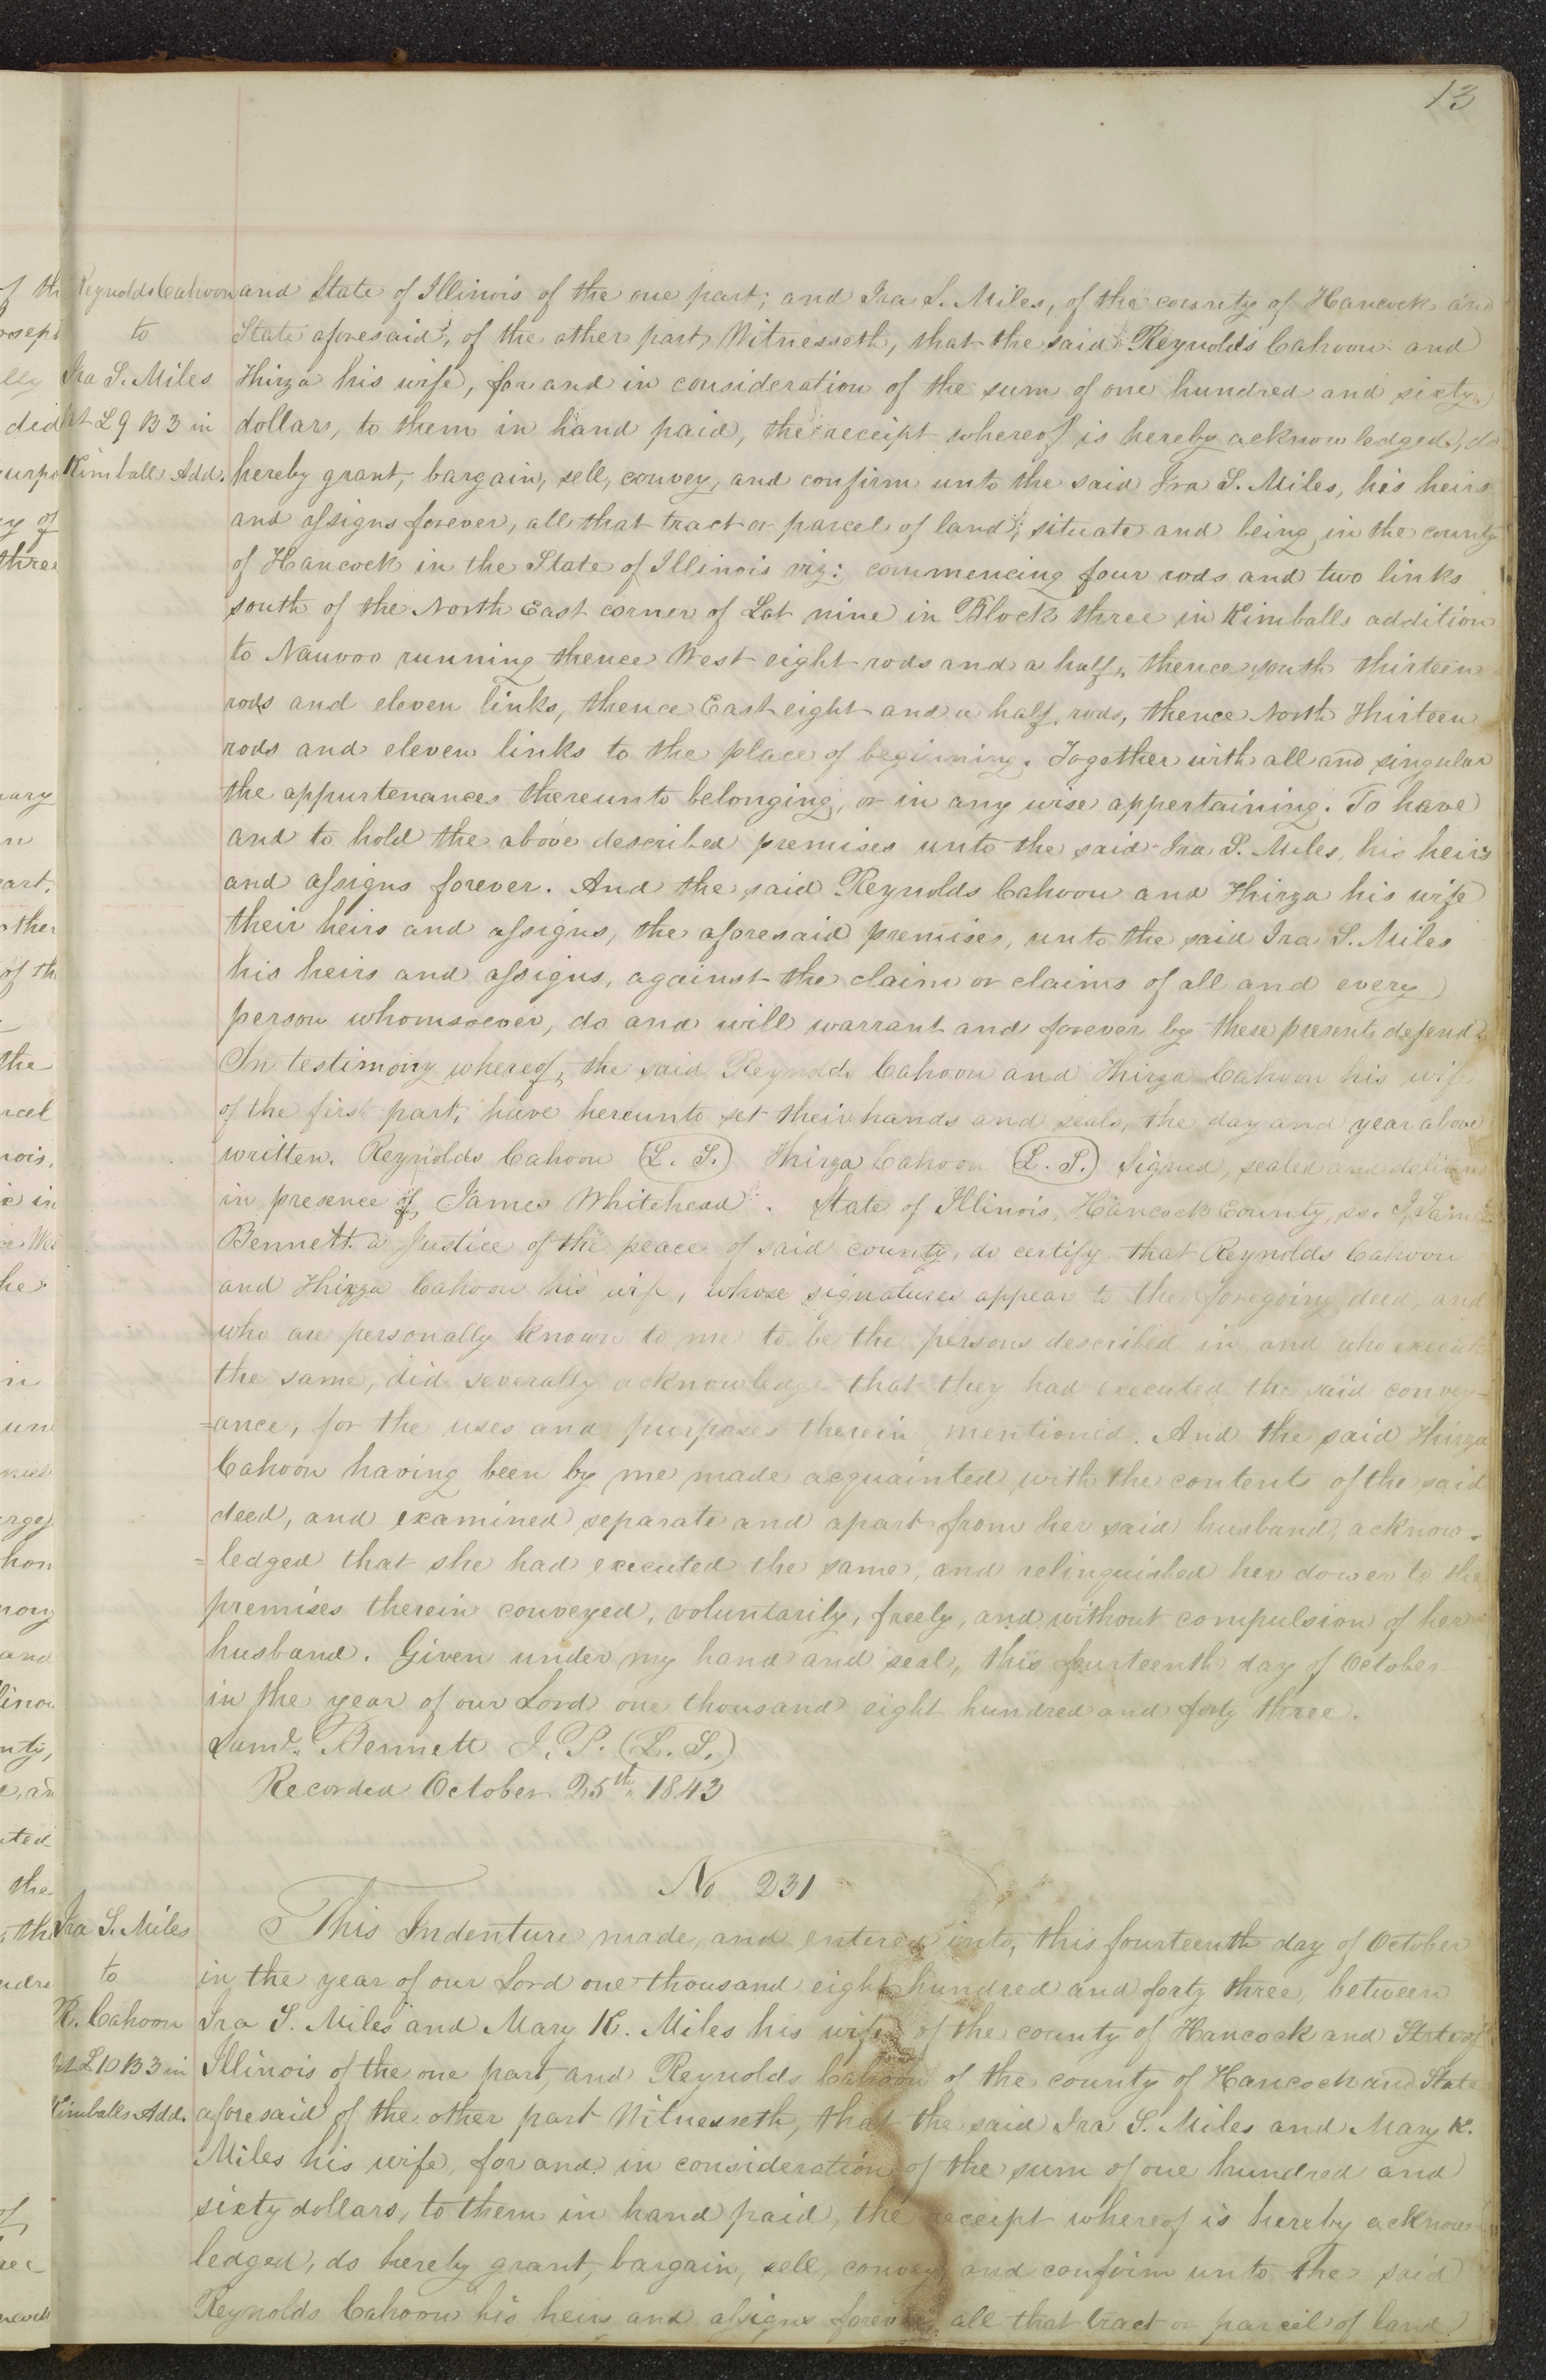 13
Reynolds Cahoon
to
Ira S. Miles
pt L 9 B 3 in
Kimballs Add.
and State of Illinois of the one part; and Ira S. Miles, of the county of Hancock and
State aforesaid, of the other part, Witnesseth, that the said Reynolds Cahoon and
Thirza his wife, for and in consideration of the sum of one hundred and sixty
dollars, to them in hand paid, the receipt whereof is hereby acknowledged, do
hereby grant, bargain, sell, convey, and confirm unto the said Ira S. Miles, his heirs
and assigns forever, all that tract or parcel of land, situate and being in the county
of Hancock in the State of Illinois viz: commencing four rods and two links
south of the North East corner of Lot nine in Block three in Kimballs addition
to Nauvoo running thence West eight rods and a half, thence south thirteen
rods and eleven links, thence East eight and a half rods, thence North Thirteen
rods and eleven links to the place of beginning. Together with all and singular
the appurtenances thereunto belonging, or in any wise appertaining. To have
and to hold the above described premises unto the said Ira S. Miles, his heirs
and assigns forever. And the said Reynolds Cahoon and Thirza his wife
their heirs and assigns, the aforesaid premises, unto the said Ira S. Miles
his heirs and assigns, against the claim or claims of all and every
person whomsoever, do and will warrant and forever by these presents defend.
In testimony whereof, the said Reynolds Cahoon and Thirza Cahoon his wife
of the first part, have hereunto set their hands and seals, the day and year above
written. Reynolds Cahoon (L. S.) Thirza Cahoon (L. S.) Signed, sealed and delivered
in presence of, James Whitehead. State of Illinois, Hancock County, ss. I, Saml.
Bennett a Justice of the peace of said county, do certify that Reynolds Cahoon
and Thirza Cahoon his wife, whose signatures appear to the foregoing deed, and
who are personally known to me to be the persons described in and who executed
the same, did severally acknowledge that they had executed the said convey-
=ance, for the uses and purposes therein mentioned. And the said Thirza
Cahoon having been by me made acquainted with the contents of the said
deed, and examined separate and apart from her said husband, acknow-
=ledged that she had executed the same, and relinquished her dower to the
premises therein conveyed, voluntarily, freely, and without compulsion of her
husband. Given under my hand and seal, this fourteenth day of October
in the year of our Lord one thousand eight hundred and forty three.
Saml. Bennett J. P. (L. S.)
Recorded October 25th 1843
No 231
Ira S. Miles
to
R. Cahoon
pt L 10 B 3 in
Kimballs Add.
This Indenture made, and entered into, this fourteenth day of October
in the year of our Lord one thousand eight hundred and forty three, between
Ira S. Miles and Mary K. Miles his wife of the county of Hancock and State of
Illinois of the one part, and Reynolds Cahoon of the county of Hancock and State
aforesaid of the other part Witnesseth, that the said Ira S. Miles and Mary K.
Miles his wife, for and in consideration of the sum of one hundred and
sixty dollars, to them in hand paid, the receipt whereof is hereby acknow-
ledged, do hereby grant, bargain, sell, convey and confirm unto the said
Reynolds Cahoon his heirs and assigns forever, all that tract or parcel of land